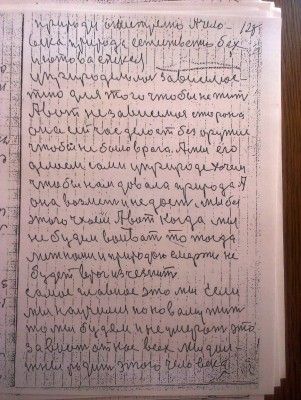 природы
128
века природа естественно без
природы мы зависимое
это для того чтобы не жить
А вот независимая сторона
она сейчас делает без оружие
чтобы не было врага. А мы его
делаем сами у природе хочем
чтобы нам давала природа А
она возьмет и не дает мы бы
этого А вот когда мы
не будем то тогда
между нами и природою смерти не
будет враг исчезнит
самое главное это мы если
мы научимся по новому жить
то мы будем и не умирать это
зависит от нас всех мы дол
жны родить этого человека